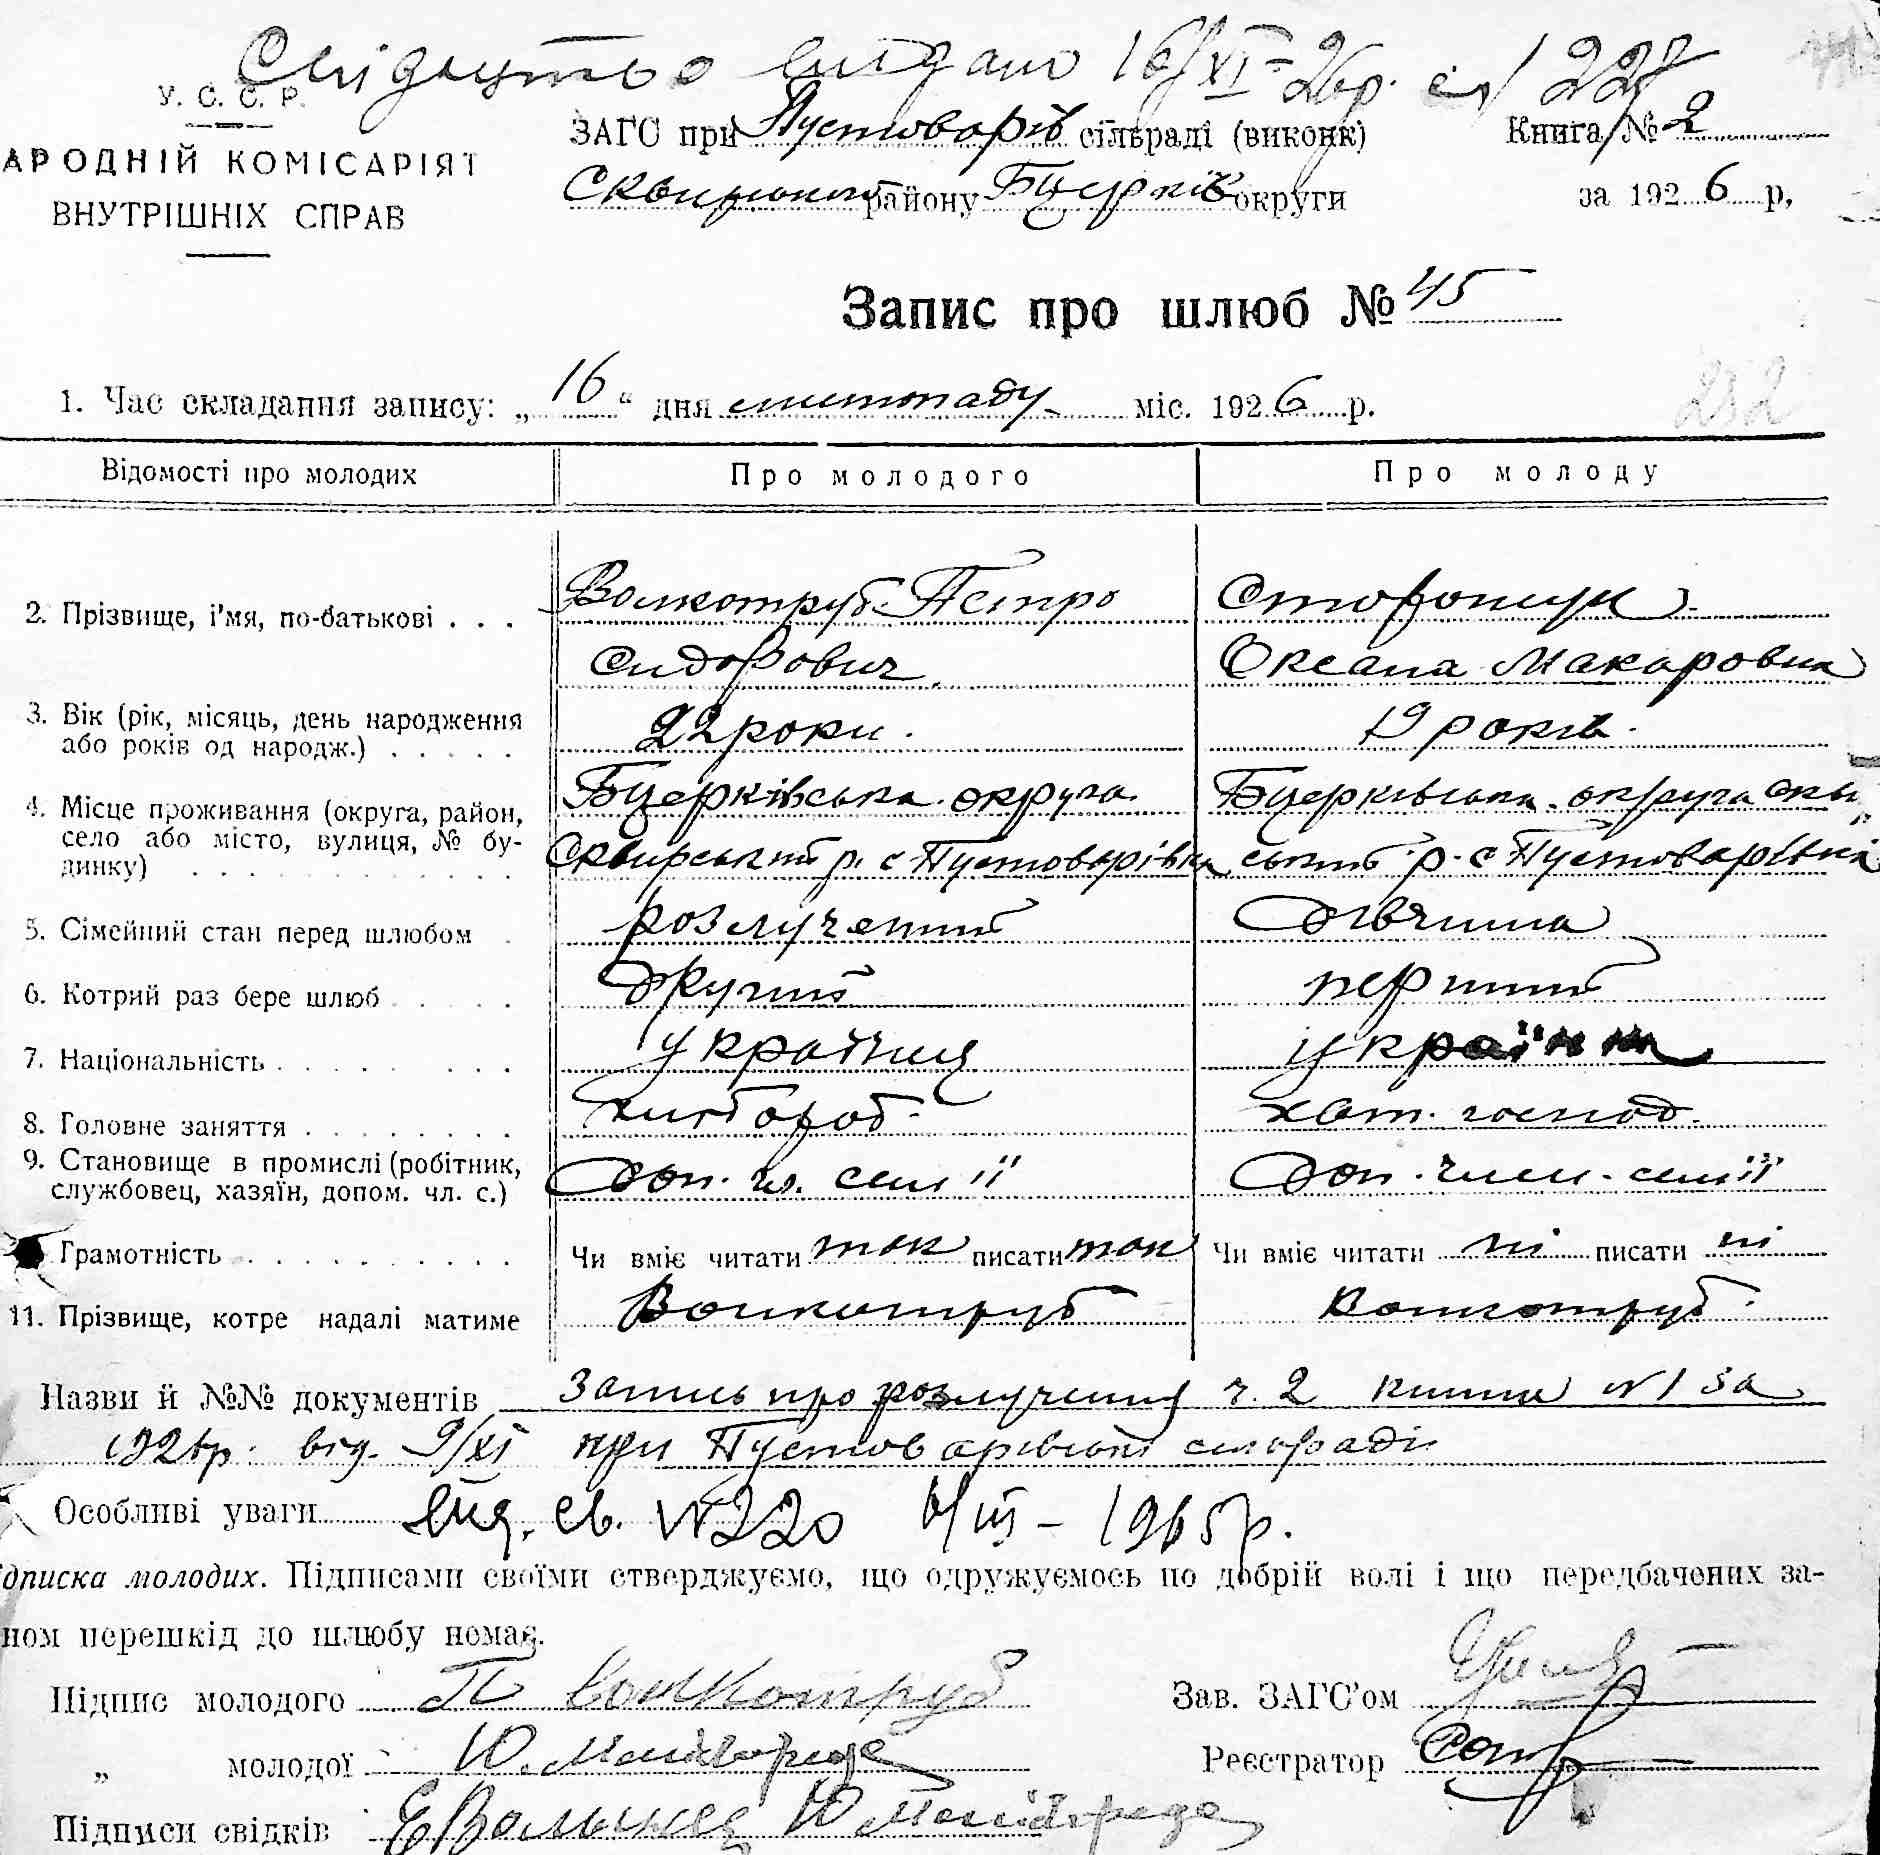 Свідоцтво видано 16/XI-26р. 
У. С. С. Р.
АРОДНІЙ КОМІСАРІЯТ
ВНУТРІШНІХ СПРАВ
ЗАГС при Пустоварів сільраді (виконк)
Сквирського району Бцерків округи
Книга № 2
за 1926 р,
Запис про шлюб № 45
1. Час складання запису: „16“ дня листопаду міс. 1926 р.
232
Відомості про молодих
Про молодого
Про молоду
2. Прізвище, і'мя, по-батькові . . .
Волкотруб Петро
Сидорович
Сторощук
Оксана Макаровна
3. Вік (рік, місяць, день народження
або років од народж.) . . . . .
22 роки.
19 років.
4. Місце проживання (округа, район,
село або місто, вулиця, № бу-
динку) . . . . . . . . . . . .
Бцерківська округа
Сквирський р. с Пустоварівка
Бцерківська округа Скви„
ський р. с Пустоварівка
5. Сімейний стан перед шлюбом .
розлучений
дівчина
6. Котрий раз бере шлюб . . . . .
другий
перший
7. Національність . . . . . . . . .
українец
українка
8. Головне заняття . . . . . . . .
хлібороб.
хат. господ.
9. Становище в промислі (робітник,
службовец, хазяїн, допом. чл. с.)
доп. чл. семії
доп. член. семії
Грамотність . . . . . . . . . .
Чи вміє читати так писати так
Чи вміє читати ні писати ні
11. Прізвище, котре надалі матиме
Волкотруб
Волкотруб.
Назви й №№ документів Запись про розлучення ч. 2 книга №1 за
1926р. від. 9/XI при Пустоварівські сільраді
Особливі уваги вид. св. №220 6/III - 1965р.
дписка молодих. Підписами своїми стверджуємо, що одружуємось по добрій волі і що передбачених за-
ном перешкід до шлюбу немає.
Підпис молодого П Волкотруб
Зав. ЗАГС'ом
„ молодої Ю.
Реєстратор
Підписи свідків Е Волынец Ю